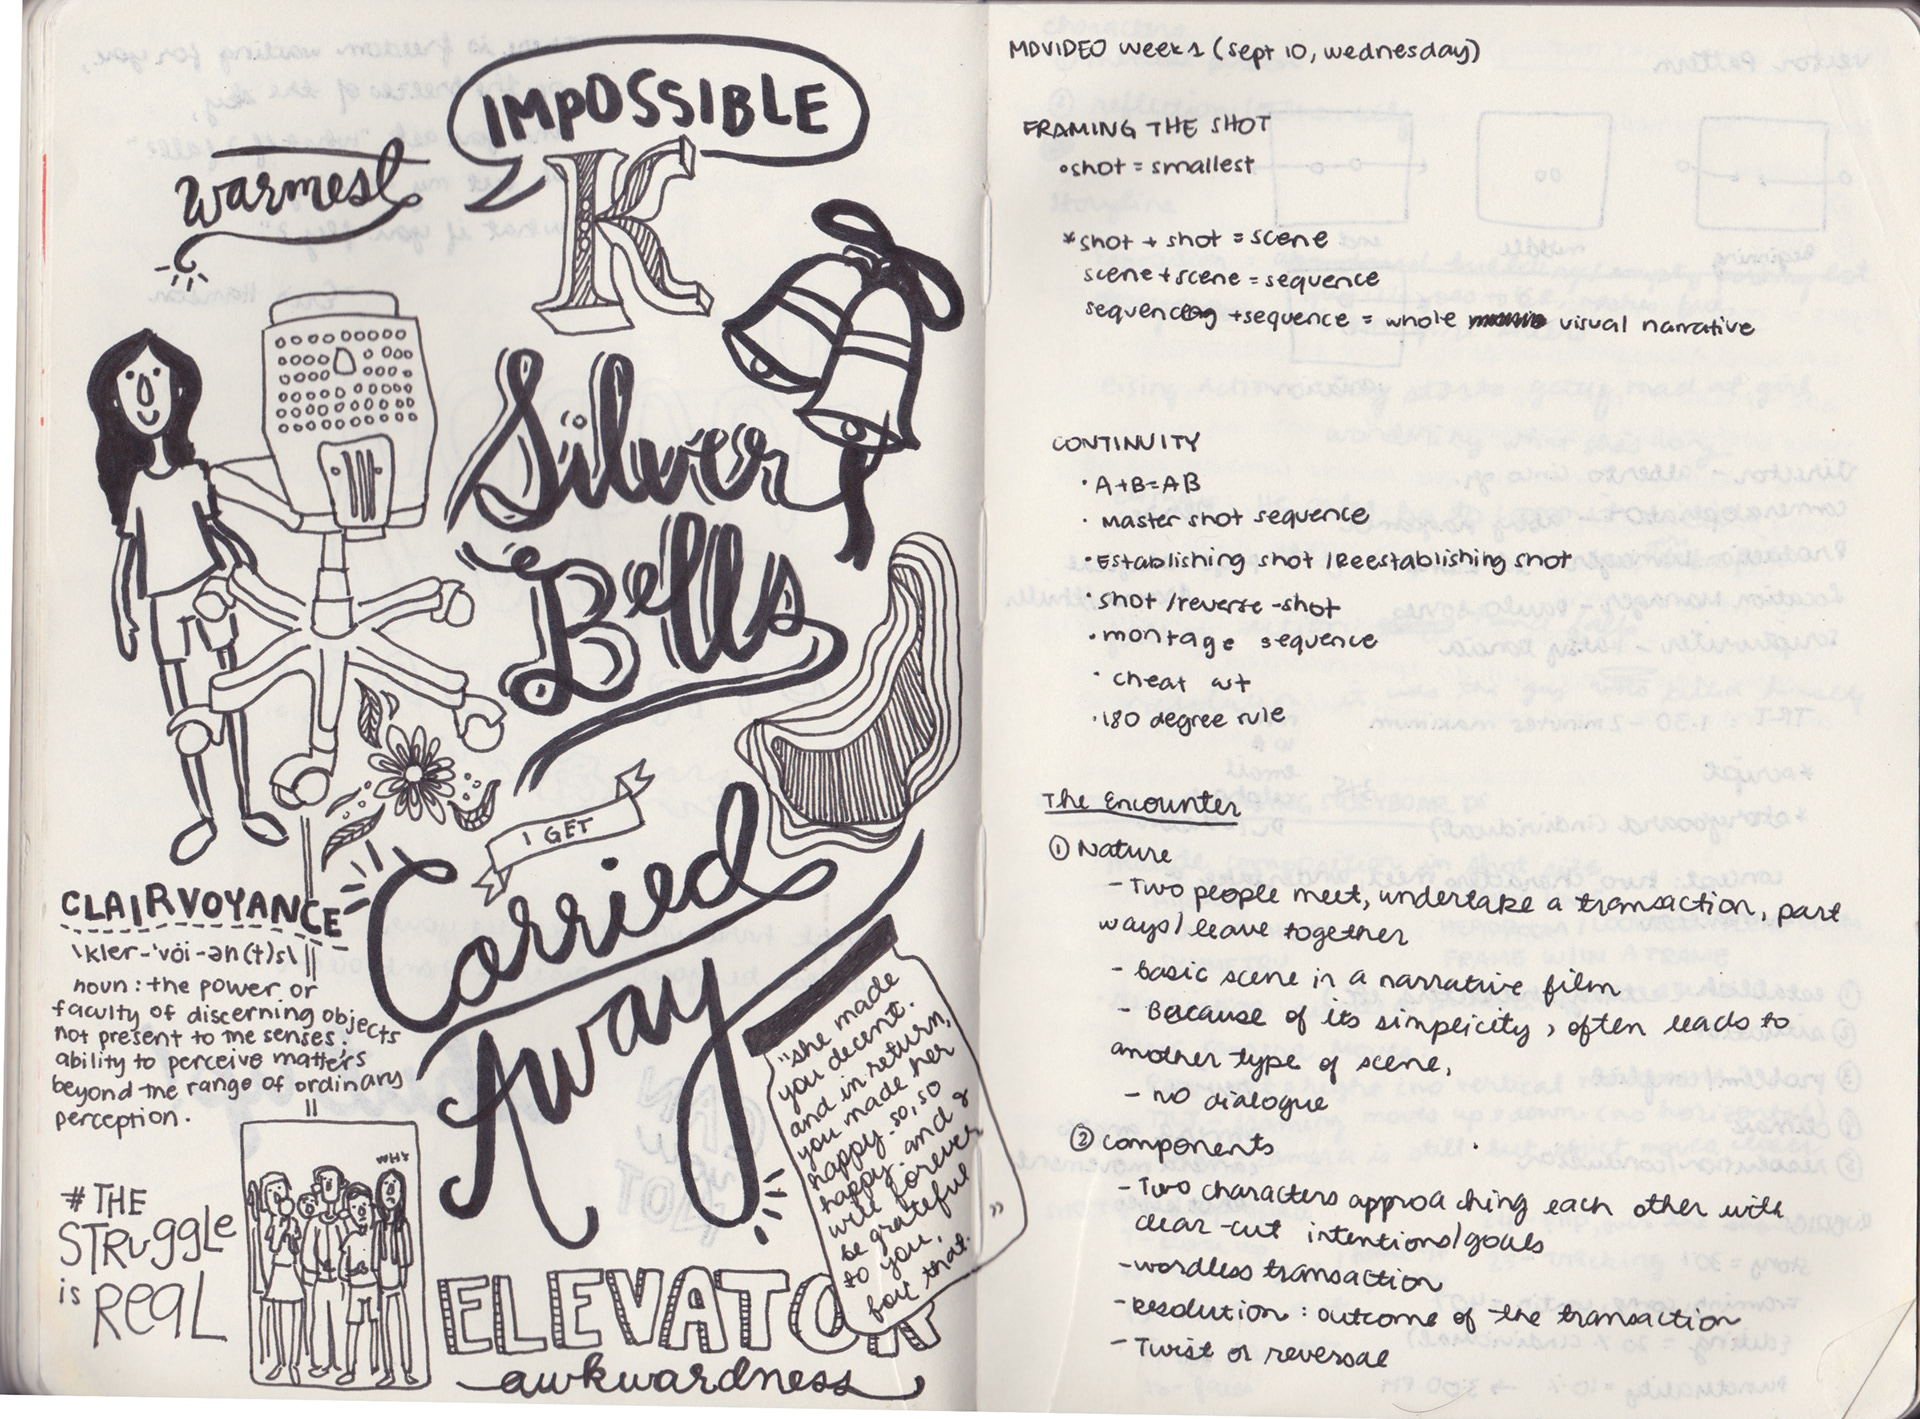 IMPOSSIBLE
warmest
K
Silver
Bells
I GET
Carried
Away
CLAIRVOYANCE
\kler-'vȯi-ən(t)s\
noun: the power or
faculty of discerning objects
not present to the senses.
ability to perceive matters
beyond the range of ordinary
perception.
WHY
# THE
STRUGGLE
is REAL
"she made
you decent.
and in return,
you made her
happy. so, so
happy. and I
will forever
be grateful
to you,
for that. "
ELEVATOR
awkwardness
MDVIDEO week 1 (sept 10, wednesday)
FRAMING THE SHOT
• shot = smallest
* shot + shot = scene
scene + scene = sequence
sequence + sequence = whole visual narrative
CONTINUITY
• A+B=AB
• Master shot sequence
• Establishing shot / Reestablishing shot
• shot / reverse-shot
• montage sequence
• cheat cut
• 180 degree rule
The Encounter
① Nature
- Two people meet, undertake a transaction, part
ways / leave together
- Basic scene in a narrative film
- Because of its simplicity, often leads to
another type of scene.
- no dialogue
② components
- Two characters approaching each other with
clear-cut intentions/goals
- wordless transaction
- Resolution: outcome of the transaction
- Twist or reversal